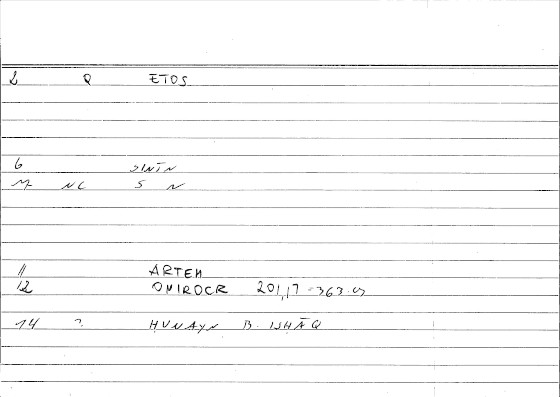 2 Q ETOS
6 SINĪN
M NC S N
11 ARTEM
12 ONIROCR 201,17 = 363.5
14 ? ḤUNAYN B. ISḤĀQ